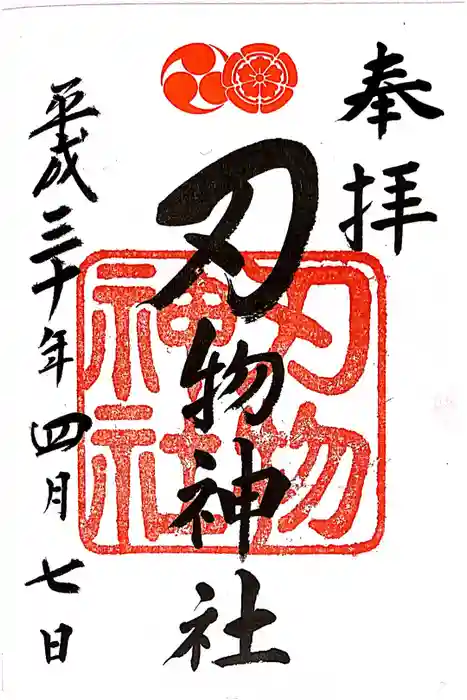 奉拝
刃物神社
刃物
神社
平成三十年四月七日